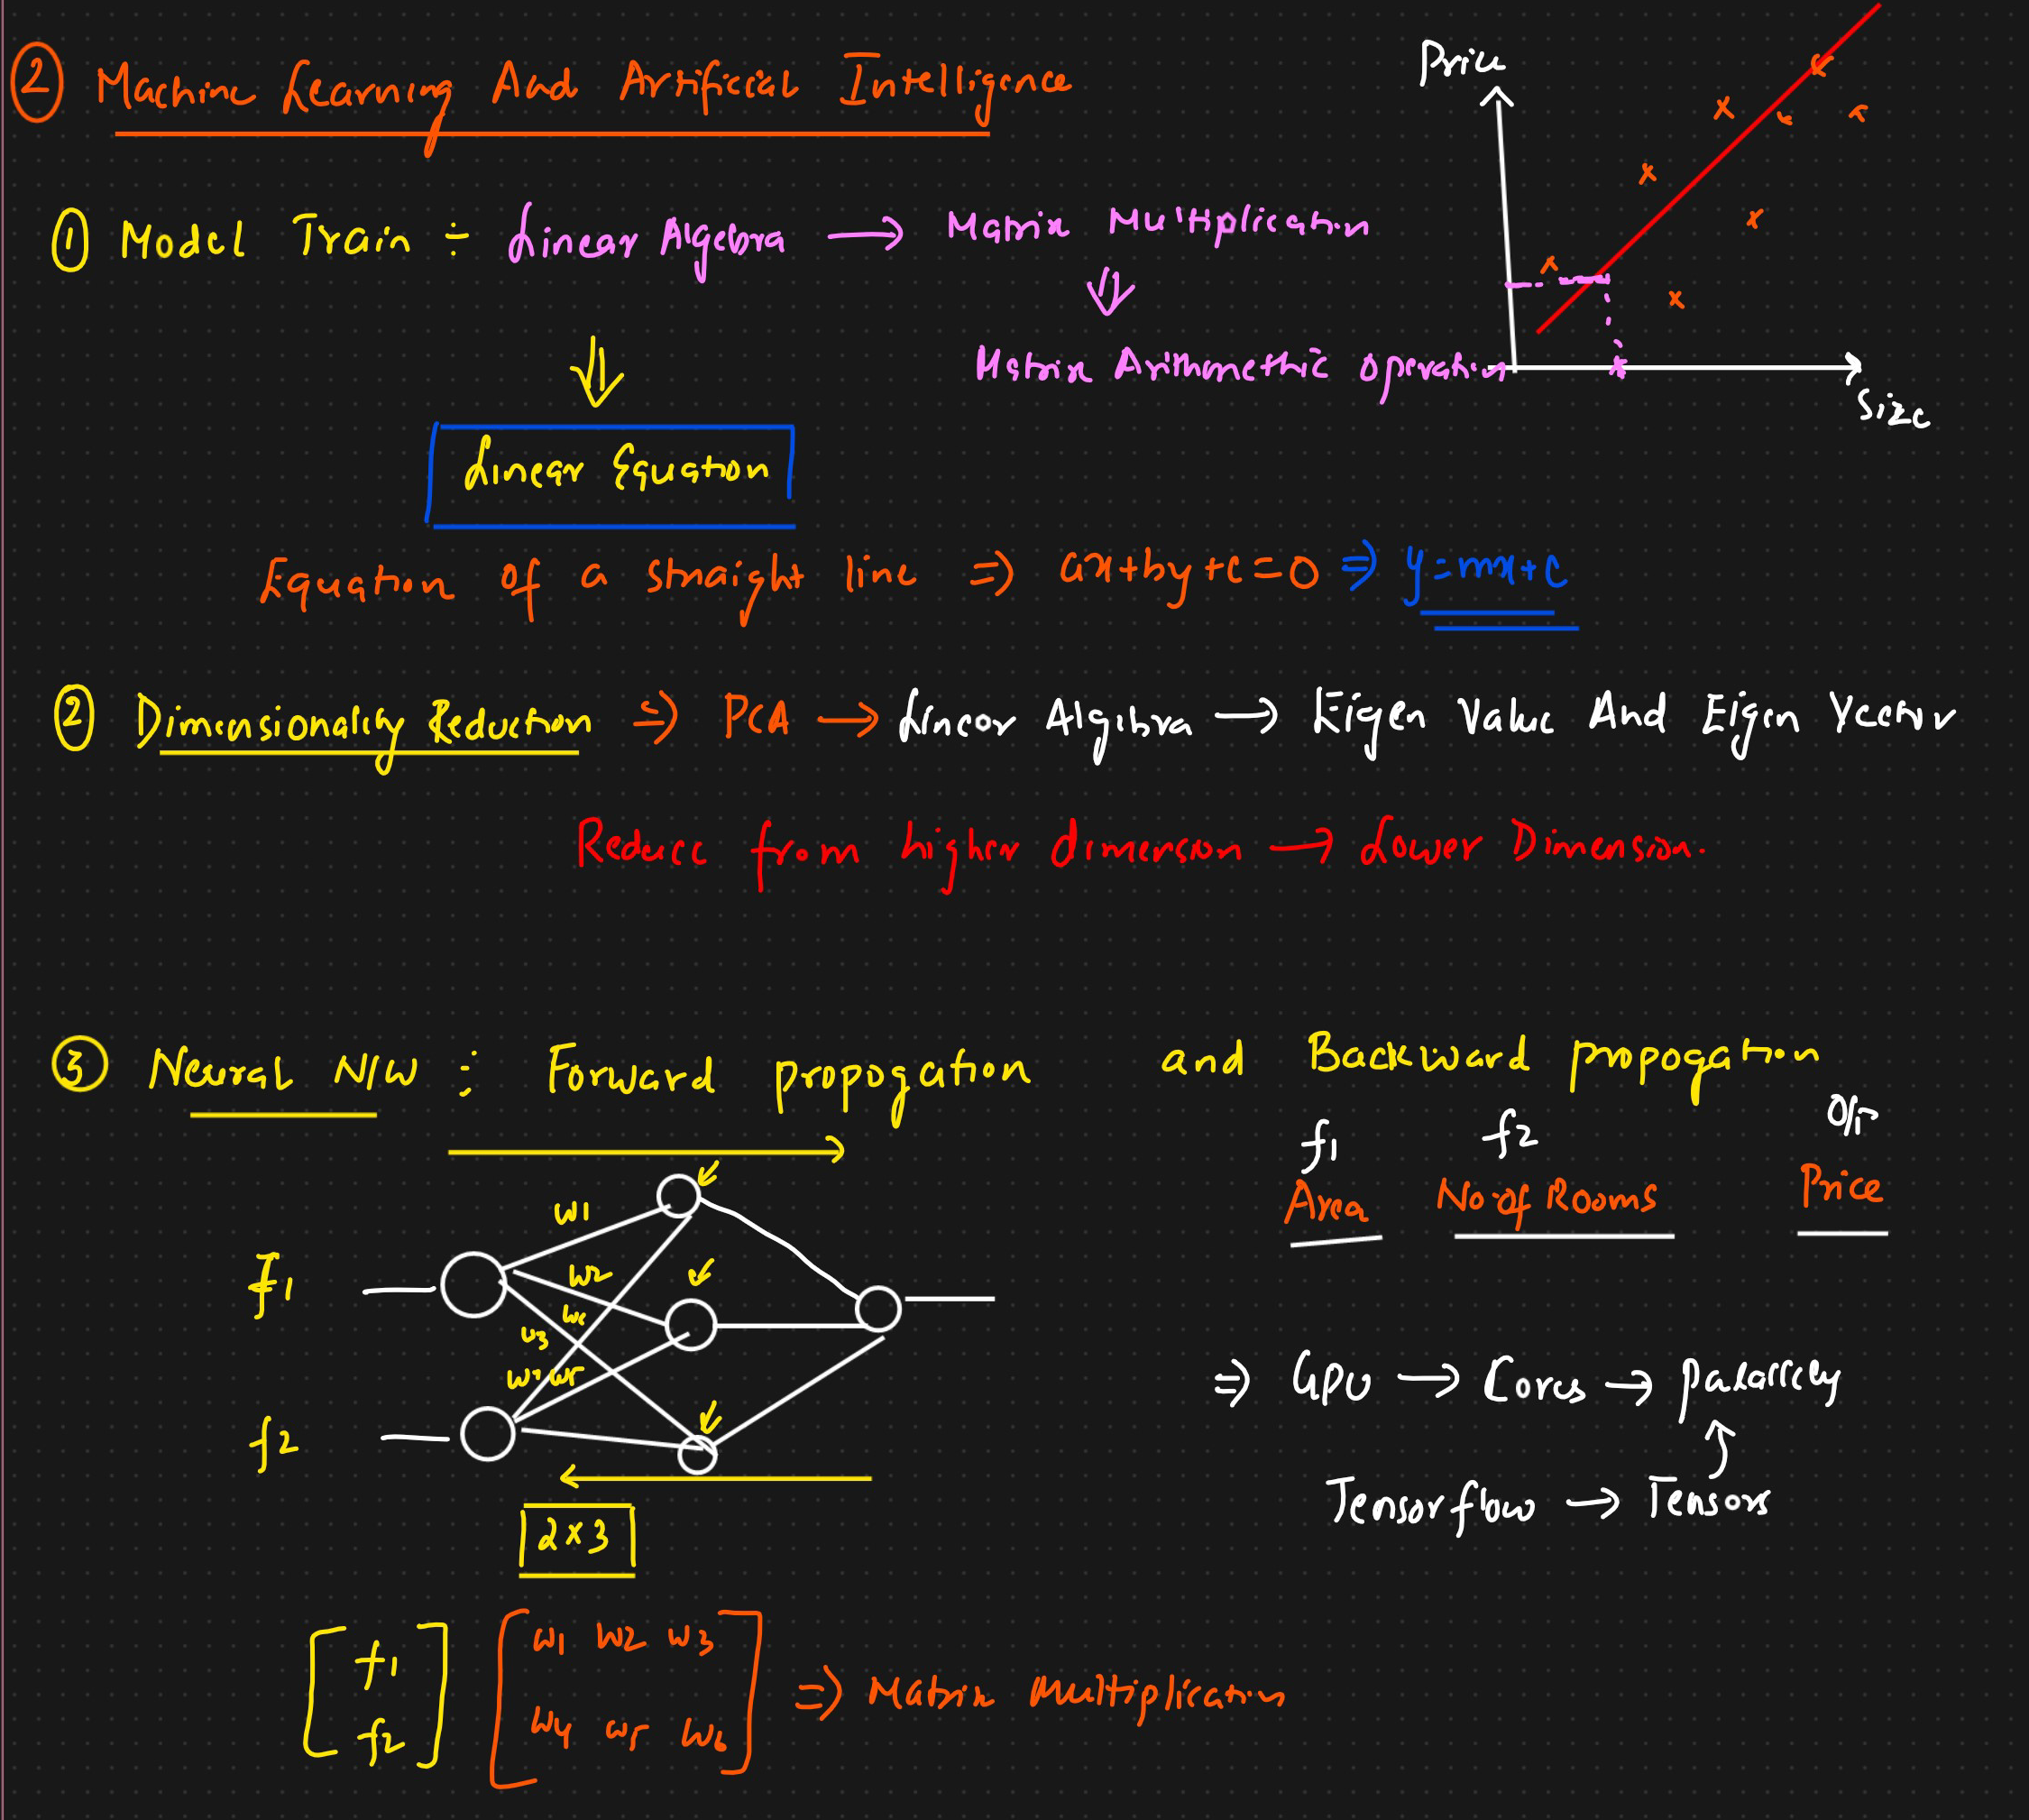 ② Machine Learning And Artificial Intelligence
Price
① Model Train ÷ Linear Algebra → Matrix Multiplication
⇓
Matrix Arithmethic operation
Size
⇓
Linear Equation
Equation of a straight line ⇒ ax+by+c=0 ⇒ y=mx+c
② Dimensionality Reduction ⇒ PCA → Linear Algebra → Eigen Value And Eigen Vector
Reduce from higher dimension → Lower Dimension.
③ Neural N/W : Forward propogation and Backward propogation
f1 f2 O/P
Area No of Rooms Price
w1
f1
w2
w3
w5
f2
⇒ GPU → Cores →
Tensorflow → Tensors
2×3
[f1 f2] [w1 w2 w3
w4 w5 w6] ⇒ Matrix Multiplication